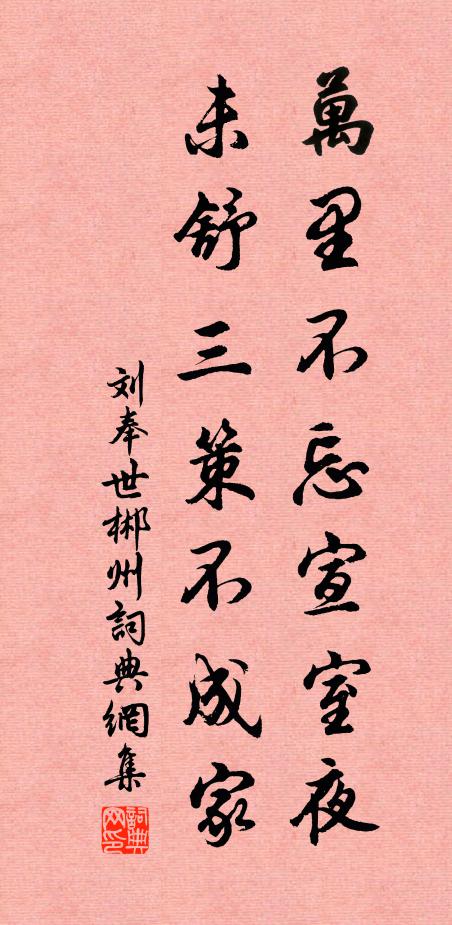 萬里不忘宣室夜
未舒三策不成家
刘奉世郴州詞典網集
詞典
网印